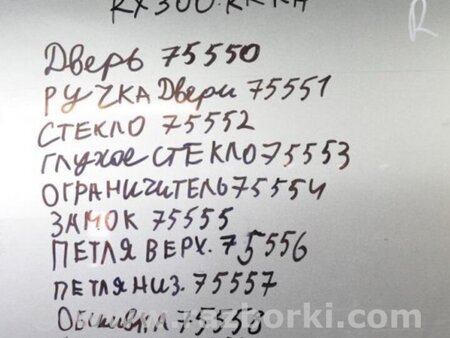 RX300.RRRH
R
Дверь 75550
РУЧКА Двери 75551
СТЕКЛО 75552
ГЛУХОЕ СТЕКЛО 75553
ОГРАНИЧИТЕЛЬ 75554
ЗАМОК 75555
ПЕТЛЯ ВЕРХ. 75556
ПЕТЛЯ НИЗ. 75557
Обшивка 75558